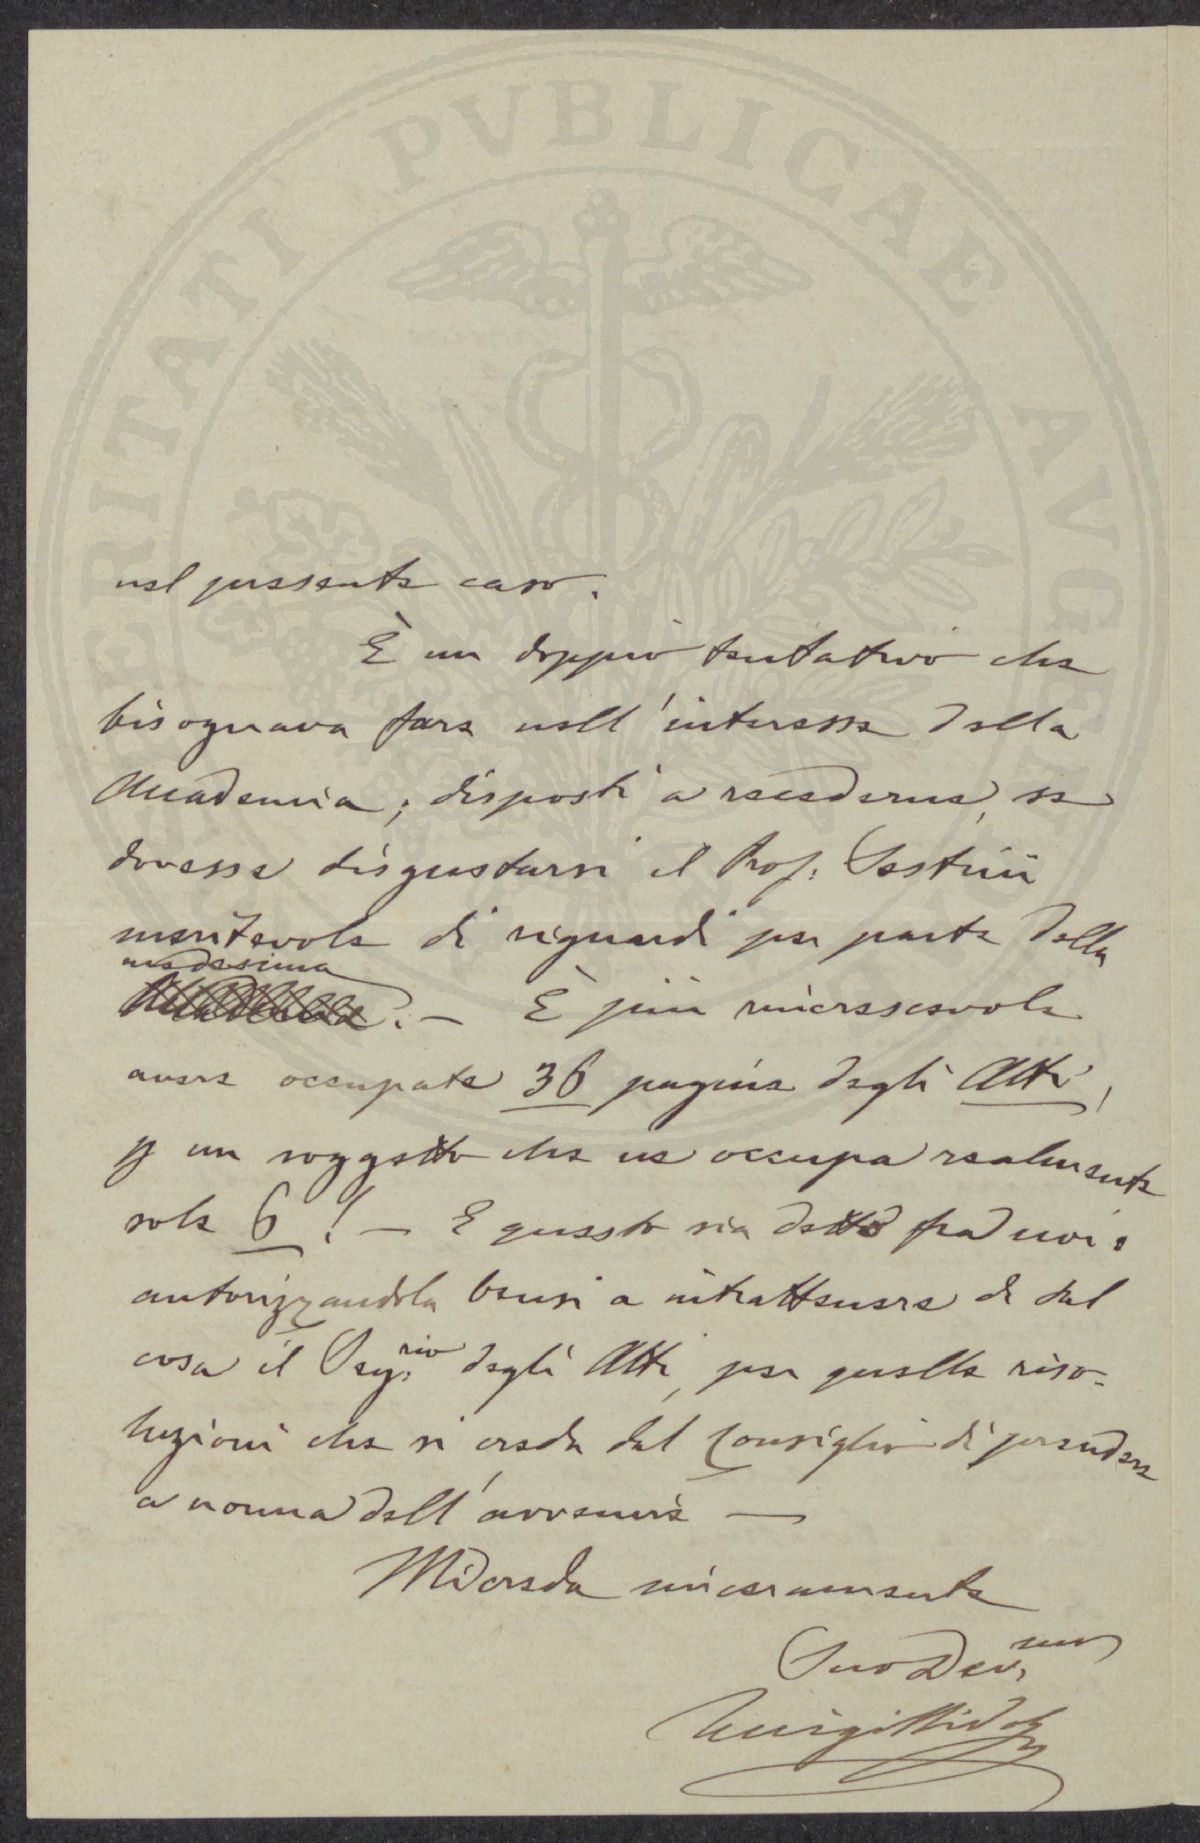 nel presente caso.
È un doppio tentativo che
bisognava fare nell'interesse della
Accademia; disposti a recederne, se
dovesse disgustarsi il Prof. Sestini
meritevole di riguardi per parte della
medesima
Accademia. — È più rincrescevole
avere occupate 36 pagine degli Atti,
p un soggetto che ne occupa realmente
sole 6! — E questo sia detto fra noi:
autorizzandola bensì a intrattenere di tal
cosa il Seg.rio degli Atti, per quelle riso-
luzioni che si creda dal Consiglio di prendere
a norma dell'avvenire —
Mi creda sinceramente
Suo Dev.mo
Luigi Ridolfi